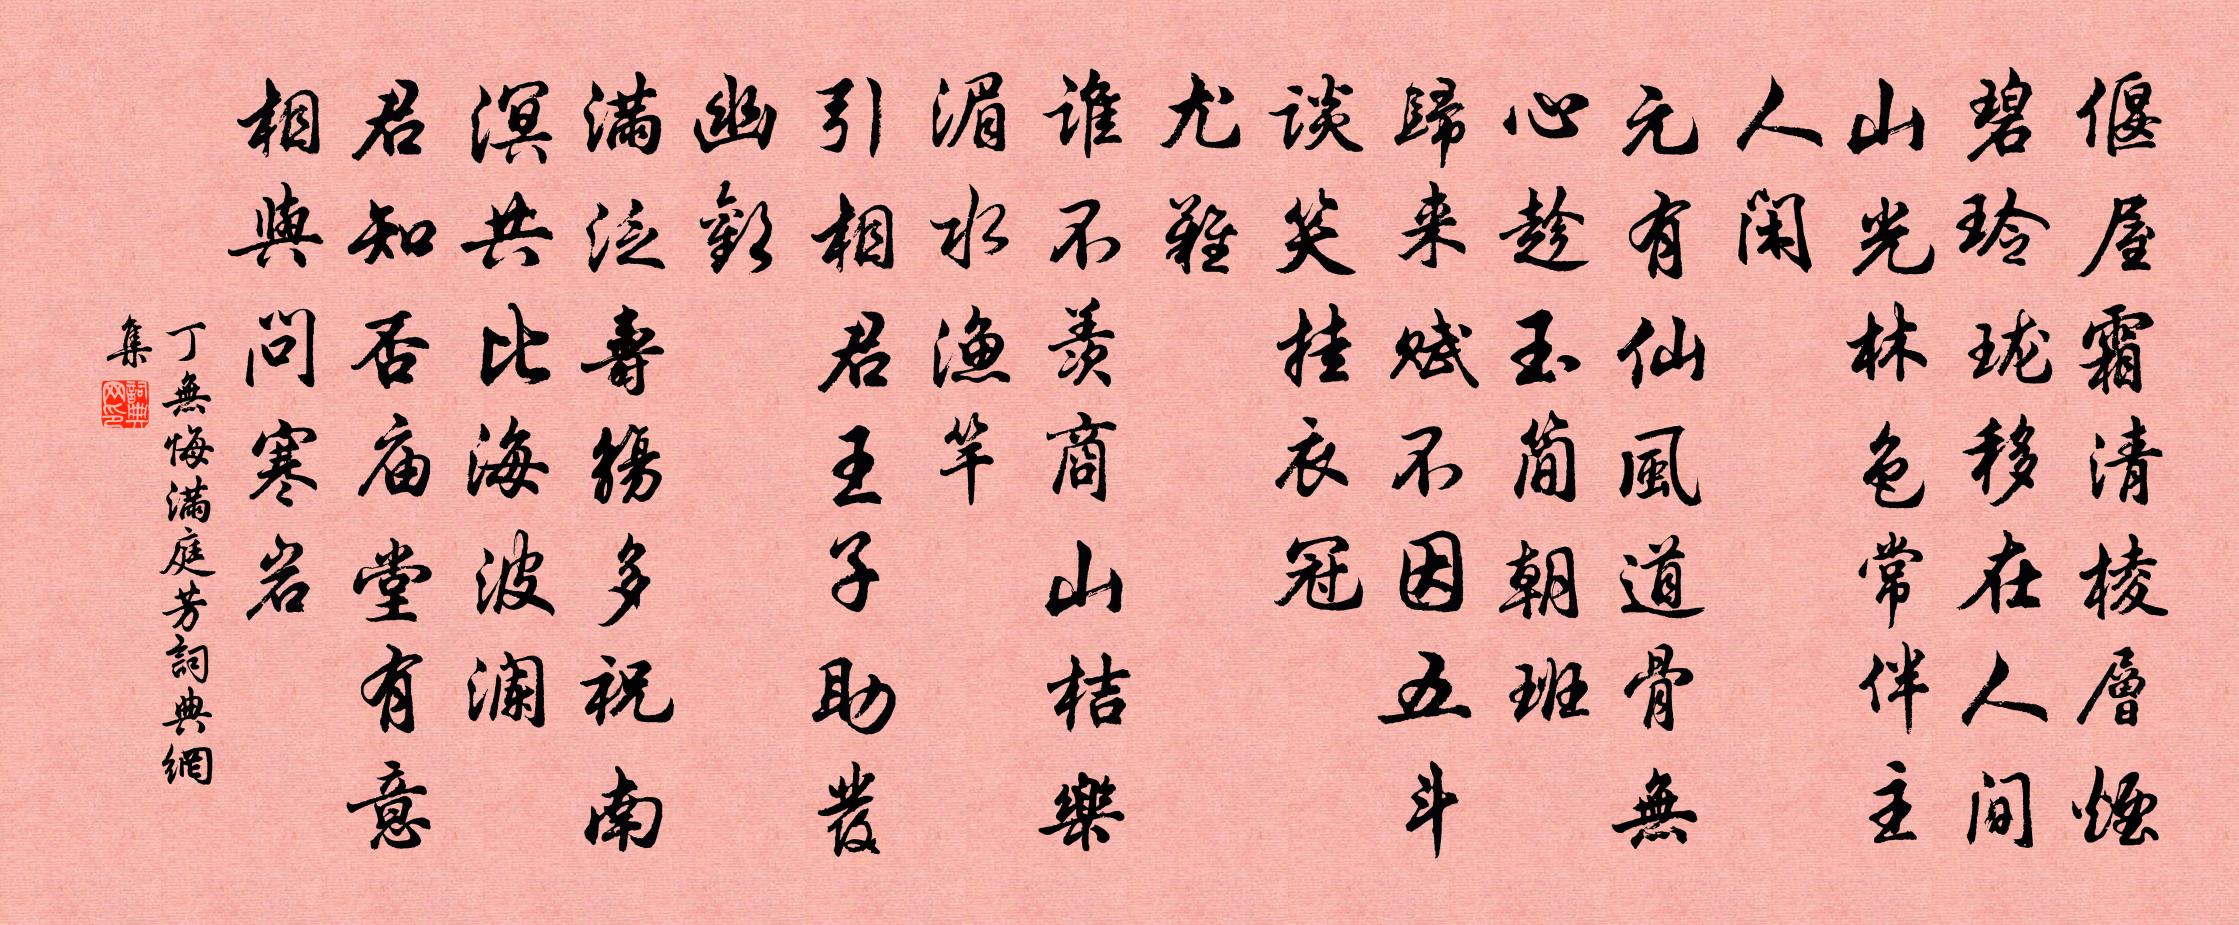 偃屋霜清棱層煙
碧玲珑移在人间
山光林色常伴主
人閑
元有仙風道骨無
心趁玉简朝班
歸来赋不因五斗
谈笑挂衣冠
尤難
谁不羡商山桔樂
湄水漁竿
引相君王子助發
幽歡
满泛壽觴多祝南
溟共比海波澜
君知否庙堂有意
相與问寒岩
丁無悔满庭芳詞典網
集
詞典網印